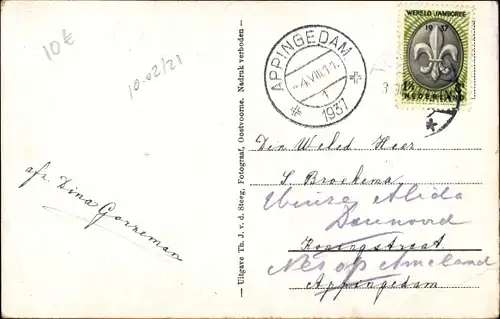 10€
10-02/21
afz. Dina Gorreman
— Uitgave Th. J. v. d. Steeg, Fotograaf, Oostvoorne. Nadruk verboden —
APPINGEDAM
-4.VIII.11.
1
1937
WERELD JAMBOREE
1937
NEDERLAND
Den Weled. Heer
S. Broekema
Huize Alida
Doornoord
Koningstraat
Nes op Ameland
Appingedam